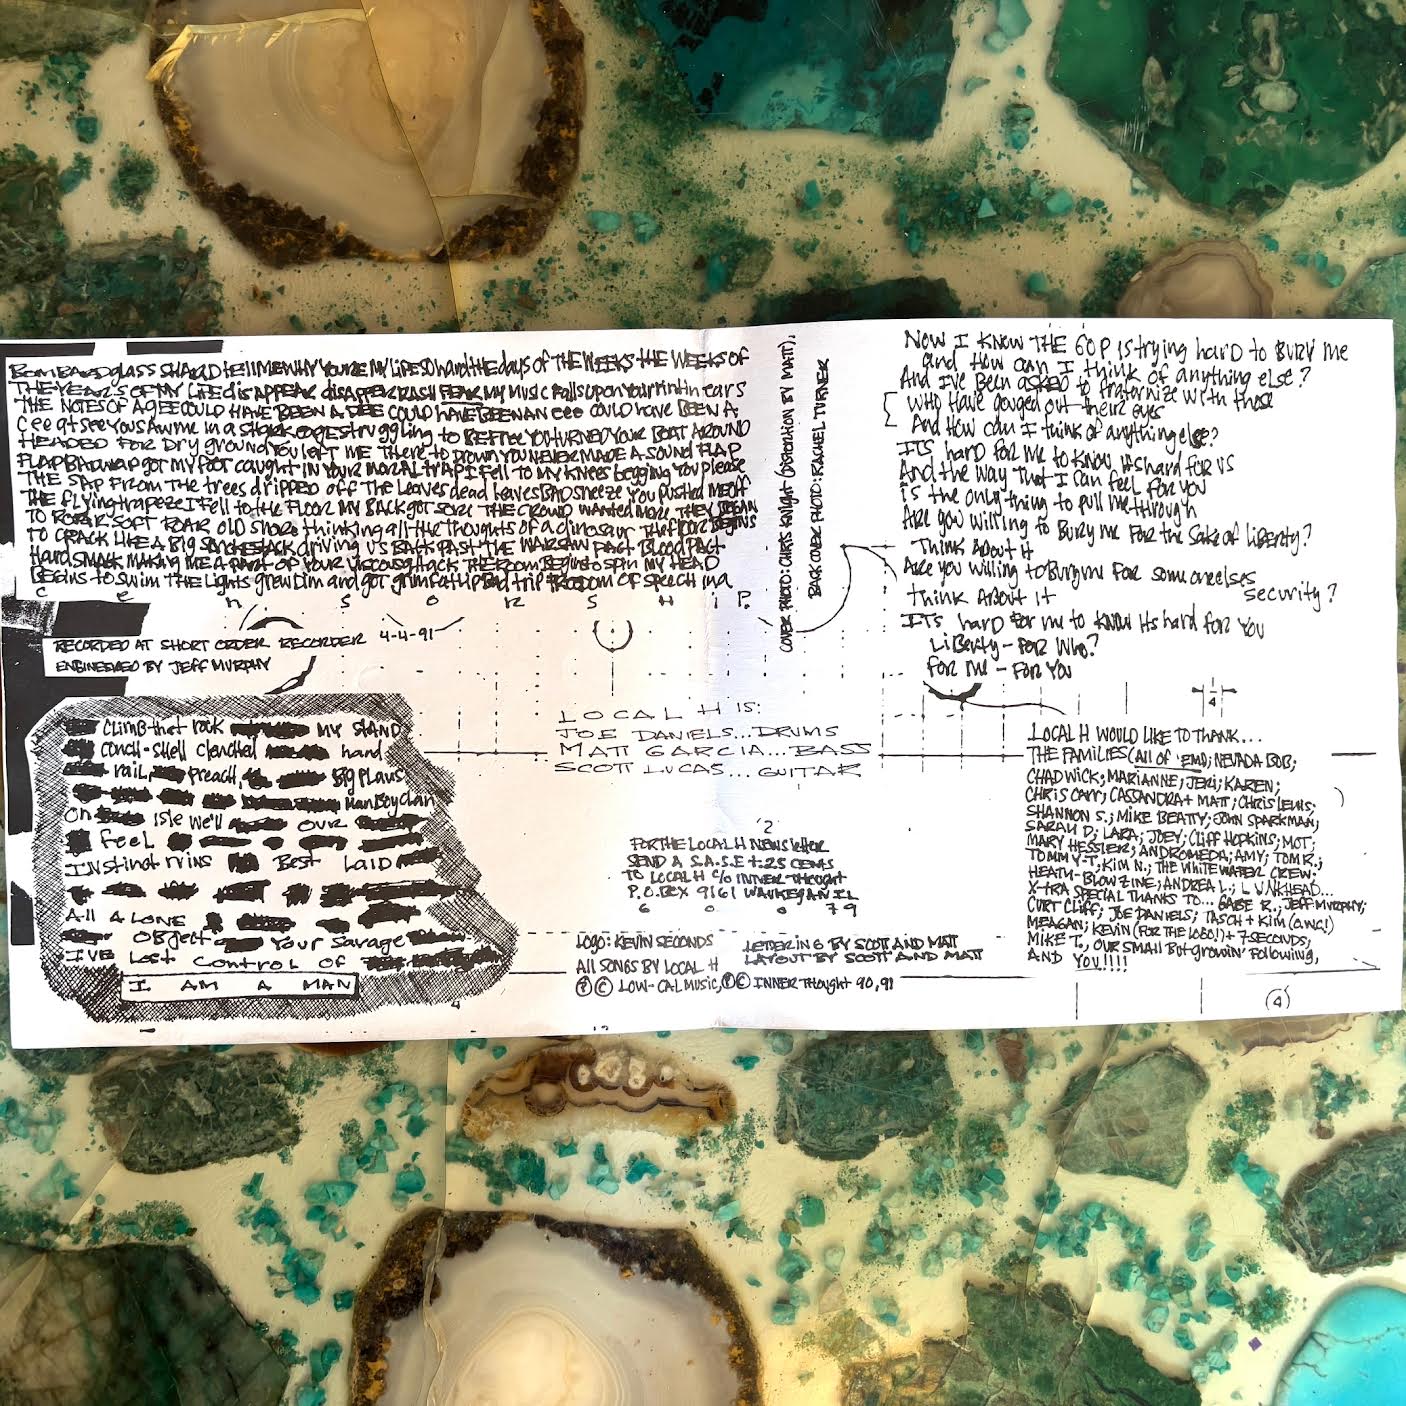 BOMBARD glass SHARD tell ME WHY YOU'RE MY LIFE SO hard the days of THE WEEKS THE WEEKS OF
THE YEARS OF MY LIFE disAPPEAR disAPPEAR RASH FEAR MY MUSIC FAlls UPON YOUR tin ears
THE NOTES OF A GEE COULD HAVE BEEN A DEE COULD HAVE BEEN AN eee COULD HAVE BEEN A
CEE at see YOU SAW me in a SHARK edge struggling to BE FREE YOU TURNED YOUR BOAT AROUND
HEADED FOR Dry ground YOU LEFT ME THERE to DROWN YOU NEVER MADE A SOUND FLAP
FLAP BAD WRAP got MY FOOT caught IN YOUR MORAL TRAP I FELL TO MY KNEES begging YOU please
THE SAP FROM THE trees dripped off THE LEAVES dead leaves BAD sneeze YOU PUSHED ME OFF
THE flying trapeze I FELL to the FLOOR MY BACK got SORE THE CROWD WANTED MORE THEY BEGAN
TO ROAR SOFT ROAR OLD SNORE thinking all the thoughts of a dinosaur THE floor BEGINS
TO CRACK LIKE A BIG SMOKESTACK driving US BACK PAST THE WARSAW PACT BLOOD PACT
Hard SMACK MAKING ME A PART OF YOUR VISCOUS Attack THE ROOM BEgins to spin MY HEAD
BEgins to swim THE Lights grew Dim and got grim FAt lip BAd trip FREEDOM OF speech in a
c e n s o r s h i p.
COVER PHOTO: CHRIS KNIGHT (DISTORTION BY MATT),
BACK COVER PHOTO: RACHEL TURNER
NOW I KNOW THE GOP IS trying hard to BURY me
and How can I think of anything else?
And I've BEEN asked to fraternize with those
who HAVE gouged out their eyes
And How can I think of anything else?
IT'S hard FOR me to KNOW it's hard FOR US
And the way THAT I can feel FOR you
is the only thing to pull me through
Are you willing to BURY me FOR the sake of liberty?
Think About it
Are you willing to Bury me FOR someone elses
security?
think ABout It
IT'S hard FOR me to KNOW it's hard FOR YOU
LiBerty - FOR Who?
FOR Me - FOR YOU
RECORDED AT SHORT ORDER RECORDER 4-4-91
ENGINEERED BY JEFF MURPHY
CLIMB that rock MY STAND
conch-shell clenched hand
rail, Preach, Big Plans
Man Boy Clan
On Isle we'll OUR
I feel
INStinct BEST LAID
All ALONE
OBject Your Savage
I'VE Lost Control OF
I AM A MAN
LOCAL H IS:
JOE DANIELS...DRUMS
MATT GARCIA...BASS
SCOTT LUCAS...GUITAR
1/4
2
FOR THE LOCAL H NEWSletter
SEND A S.A.S.E + 25 CENTS
TO LOCAL H C/O INNER THOUGHT
P.O. BOX 9161 WAUKEGAN IL
6 0 0 79
LOGO: KEVIN SECONDS
All SONGS BY LOCAL H
Ⓟ © LOW-CAL MUSIC, Ⓟ © INNER THOUGHT 90, 91
LETTERING BY SCOTT AND MATT
LAYOUT BY SCOTT AND MATT
LOCAL H WOULD LIKE TO THANK...
THE FAMILIES (All OF 'EM); NEVADA BOB;
CHADWICK; MARIANNE; JERI; KAREN;
CHRIS CARR; CASSANDRA + MATT; CHRIS LEWIS;
SHANNON S.; MIKE BEATTY; JOHN SPARKMAN;
SARAH D; LARA; JOEY; CLIFF HOPKINS; MOT;
MARY HESSLER; ANDROMEDA; AMY; TOM R.;
TOMMY-T; KIM N.; THE WHITEWATER CREW;
HEATH-BLOW ZINE; ANDREA L.; LUNKHEAD...
X-TRA SPECIAL THANKS TO... GABE R.; JEFF MURPHY;
CURT CLIFF; JOE DANIELS; TASCH + KIM (a.w.c.!)
MEAGAN; KEVIN (FOR THE LOGO!) + 7 SECONDS;
MIKE T., OUR SMALL BUT growin' Following,
AND YOU!!!!
4
(4)